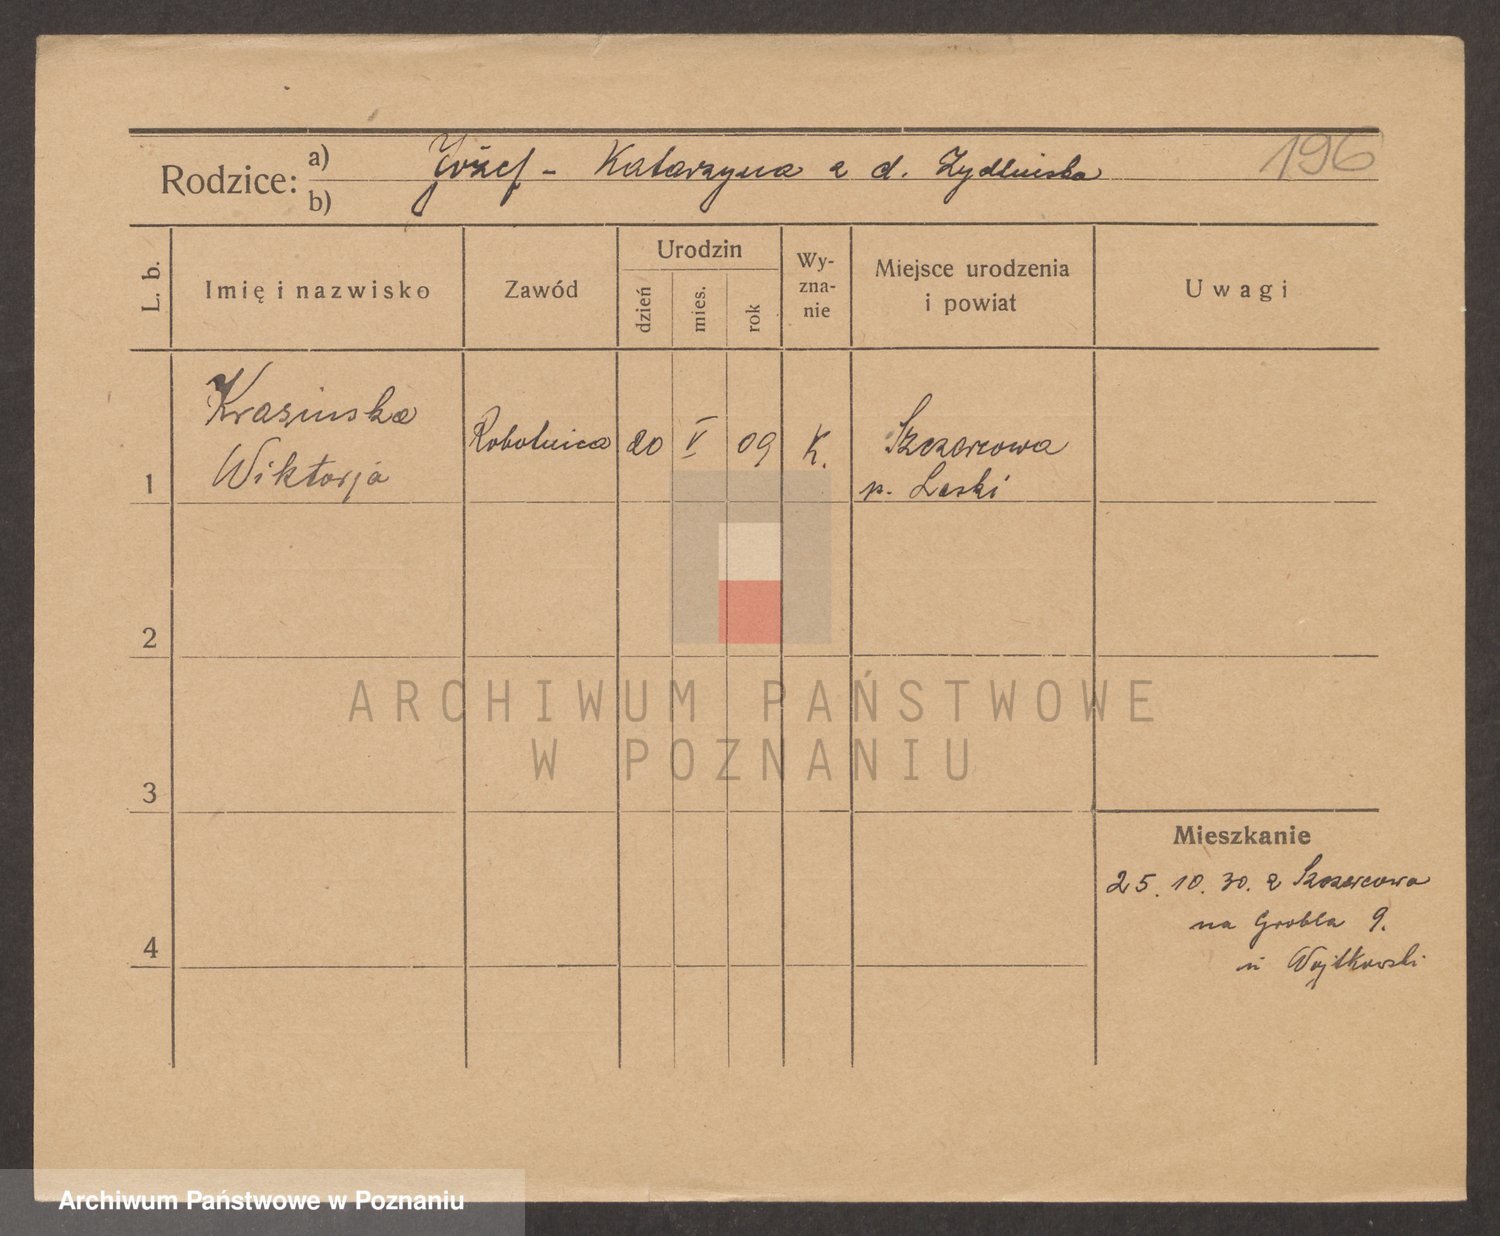 196
Rodzice: a) Józef - Katarzyna z d. Żydlińska
b)
L. b.
Imię i nazwisko
Zawód
Urodzin
dzień
mies.
rok
Wy-
zna-
nie
Miejsce urodzenia
i powiat
Uwagi
Krasinska
Wiktorja
Robotnica
20
V
09
K.
Szczercowa
p. Łaski
1
2
3
4
Mieszkanie
25. 10. 30. z Szczercowa
na Grobla 9.
u Wojtkowski
ARCHIWUM PAŃSTWOWE
W POZNANIU
Archiwum Państwowe w Poznaniu